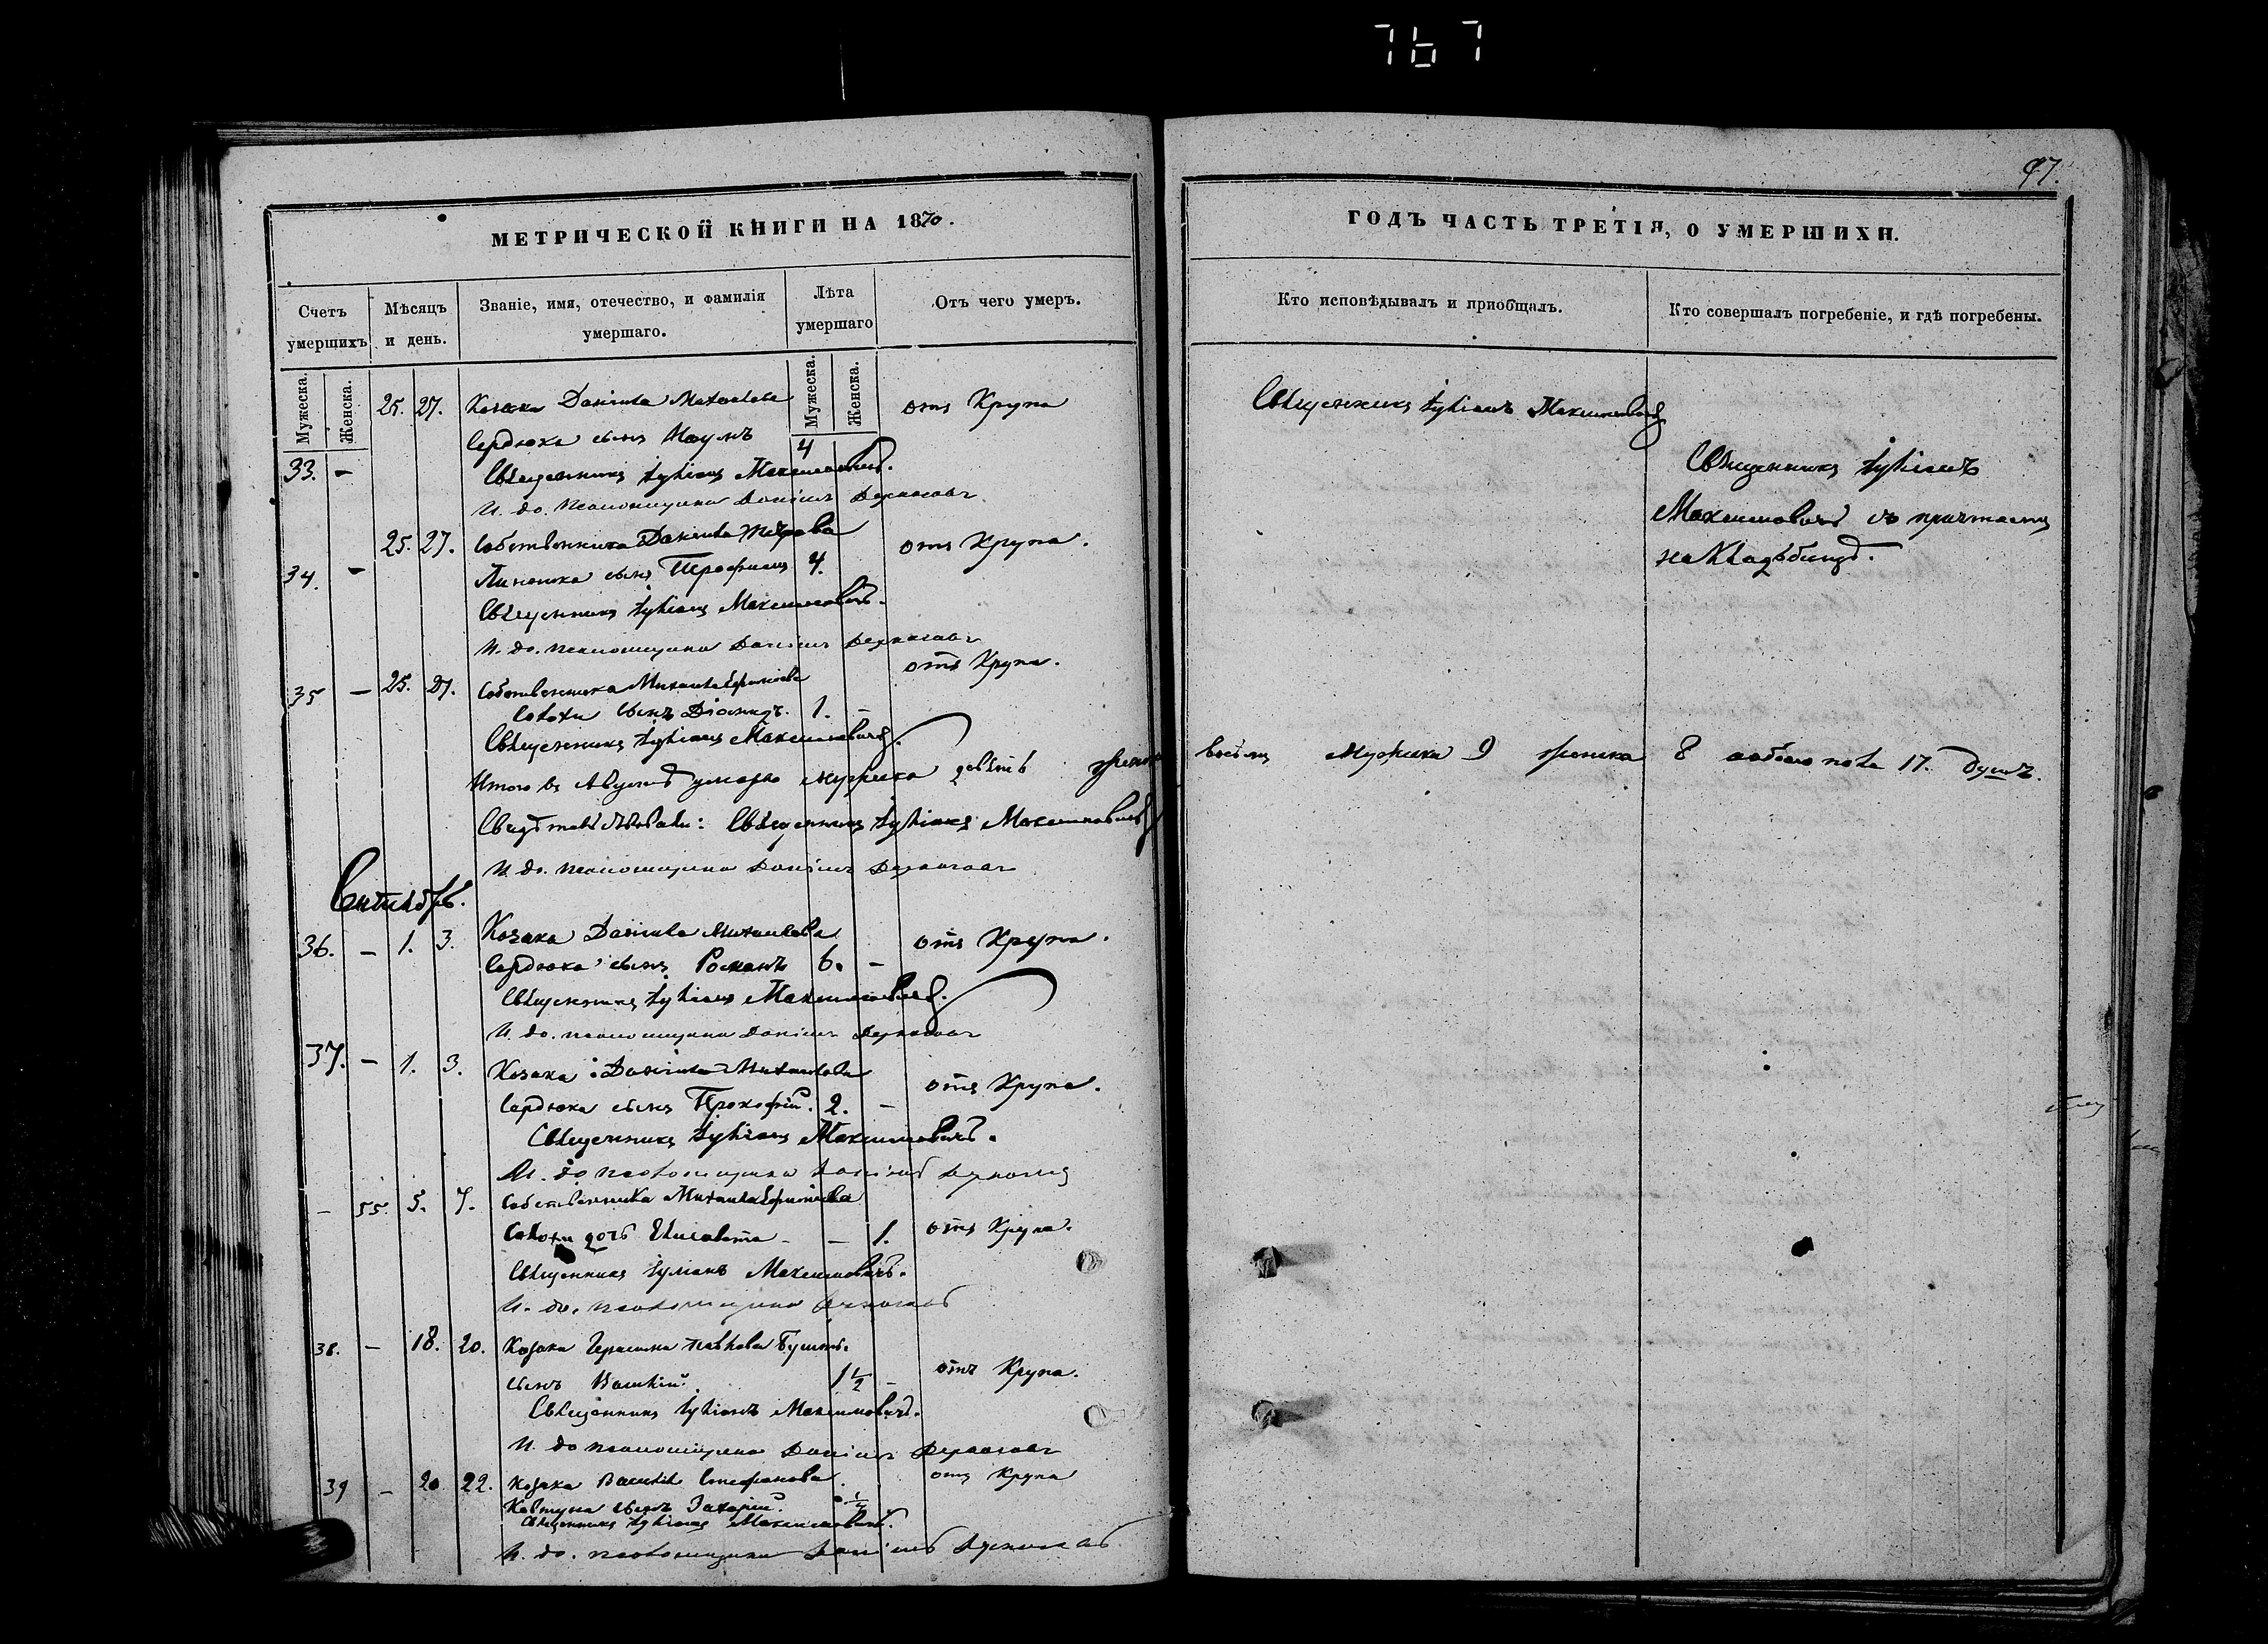 767
97.
МЕТРИЧЕСКОЙ КНИГИ НА 1870.
ГОДЪ ЧАСТЬ ТРЕТІЯ, О УМЕРШИХЪ.
Счетъ умершихъ
Мѣсяцъ и день.
Званіе, имя, отечество, и фамилія умершаго.
Лѣта умершаго
Отъ чего умеръ.
Кто исповѣдывалъ и пріобщалъ.
Кто совершалъ погребеніе, и гдѣ погребены.
Мужеска.
Женска.
Мужеска.
Женска.
25. 27. Козака Даніила Михаилова отъ Крупа
Сердюка сынъ Наумъ 4
33. – Священникъ Іуліанъ Максимовичъ.
И. до. псаломщика Даніилъ
Священникъ Іуліанъ Максимовичъ
Священникъ Іуліанъ
Максимовичъ съ причтомъ
на кладбищѣ.
25. 27. Собственника Даніила отъ Крупа.
34. – сынъ Трофимъ 4.
Священникъ Іуліанъ Максимовичъ.
И. до. псаломщика Даніилъ
35 – 25. 27. Собственника Михаила Ефимова отъ Крупа.
Солохи сынъ Діомидъ. 1. –
Священникъ Іуліанъ Максимовичъ.
Итого въ Августѣ умерло мужеска девять женска восемь мужеска 9 женска 8 обоего пола 17. душъ.
Свидѣтельствовали: Священникъ Іуліанъ Максимовичъ
И. до. псаломщика Даніилъ
Сентябрь.
36. – 1. 3. Козака Даніила Михаилова отъ Крупа.
Сердюка сынъ Романъ 6. –
Священникъ Іуліанъ Максимовичъ.
И. до. псаломщика Даніилъ
37. – 1. 3. Козака Даніила Михаилова отъ Крупа.
Сердюка сынъ Прокофій. 2. –
Священникъ Іуліанъ Максимовичъ.
И. до псаломщика Даніилъ
– 55. 5. 7. Собственника Михаила Ефимова
Солохи дочь Елисавета – – 1. отъ Крупа.
Священникъ Іуліанъ Максимовичъ.
И. до. псаломщика
38. – 18. 20. Козака Герасима Павлова
сынъ Василій. 1½ – отъ Крупа.
Священникъ Іуліанъ Максимовичъ.
И. до псаломщика Даніилъ
39 – 20 22. Козака Василія Стефанова отъ Крупа
Ковтуна сынъ Захарій.
Священникъ Іуліанъ Максимовичъ.
И. до. псаломщика Даніилъ